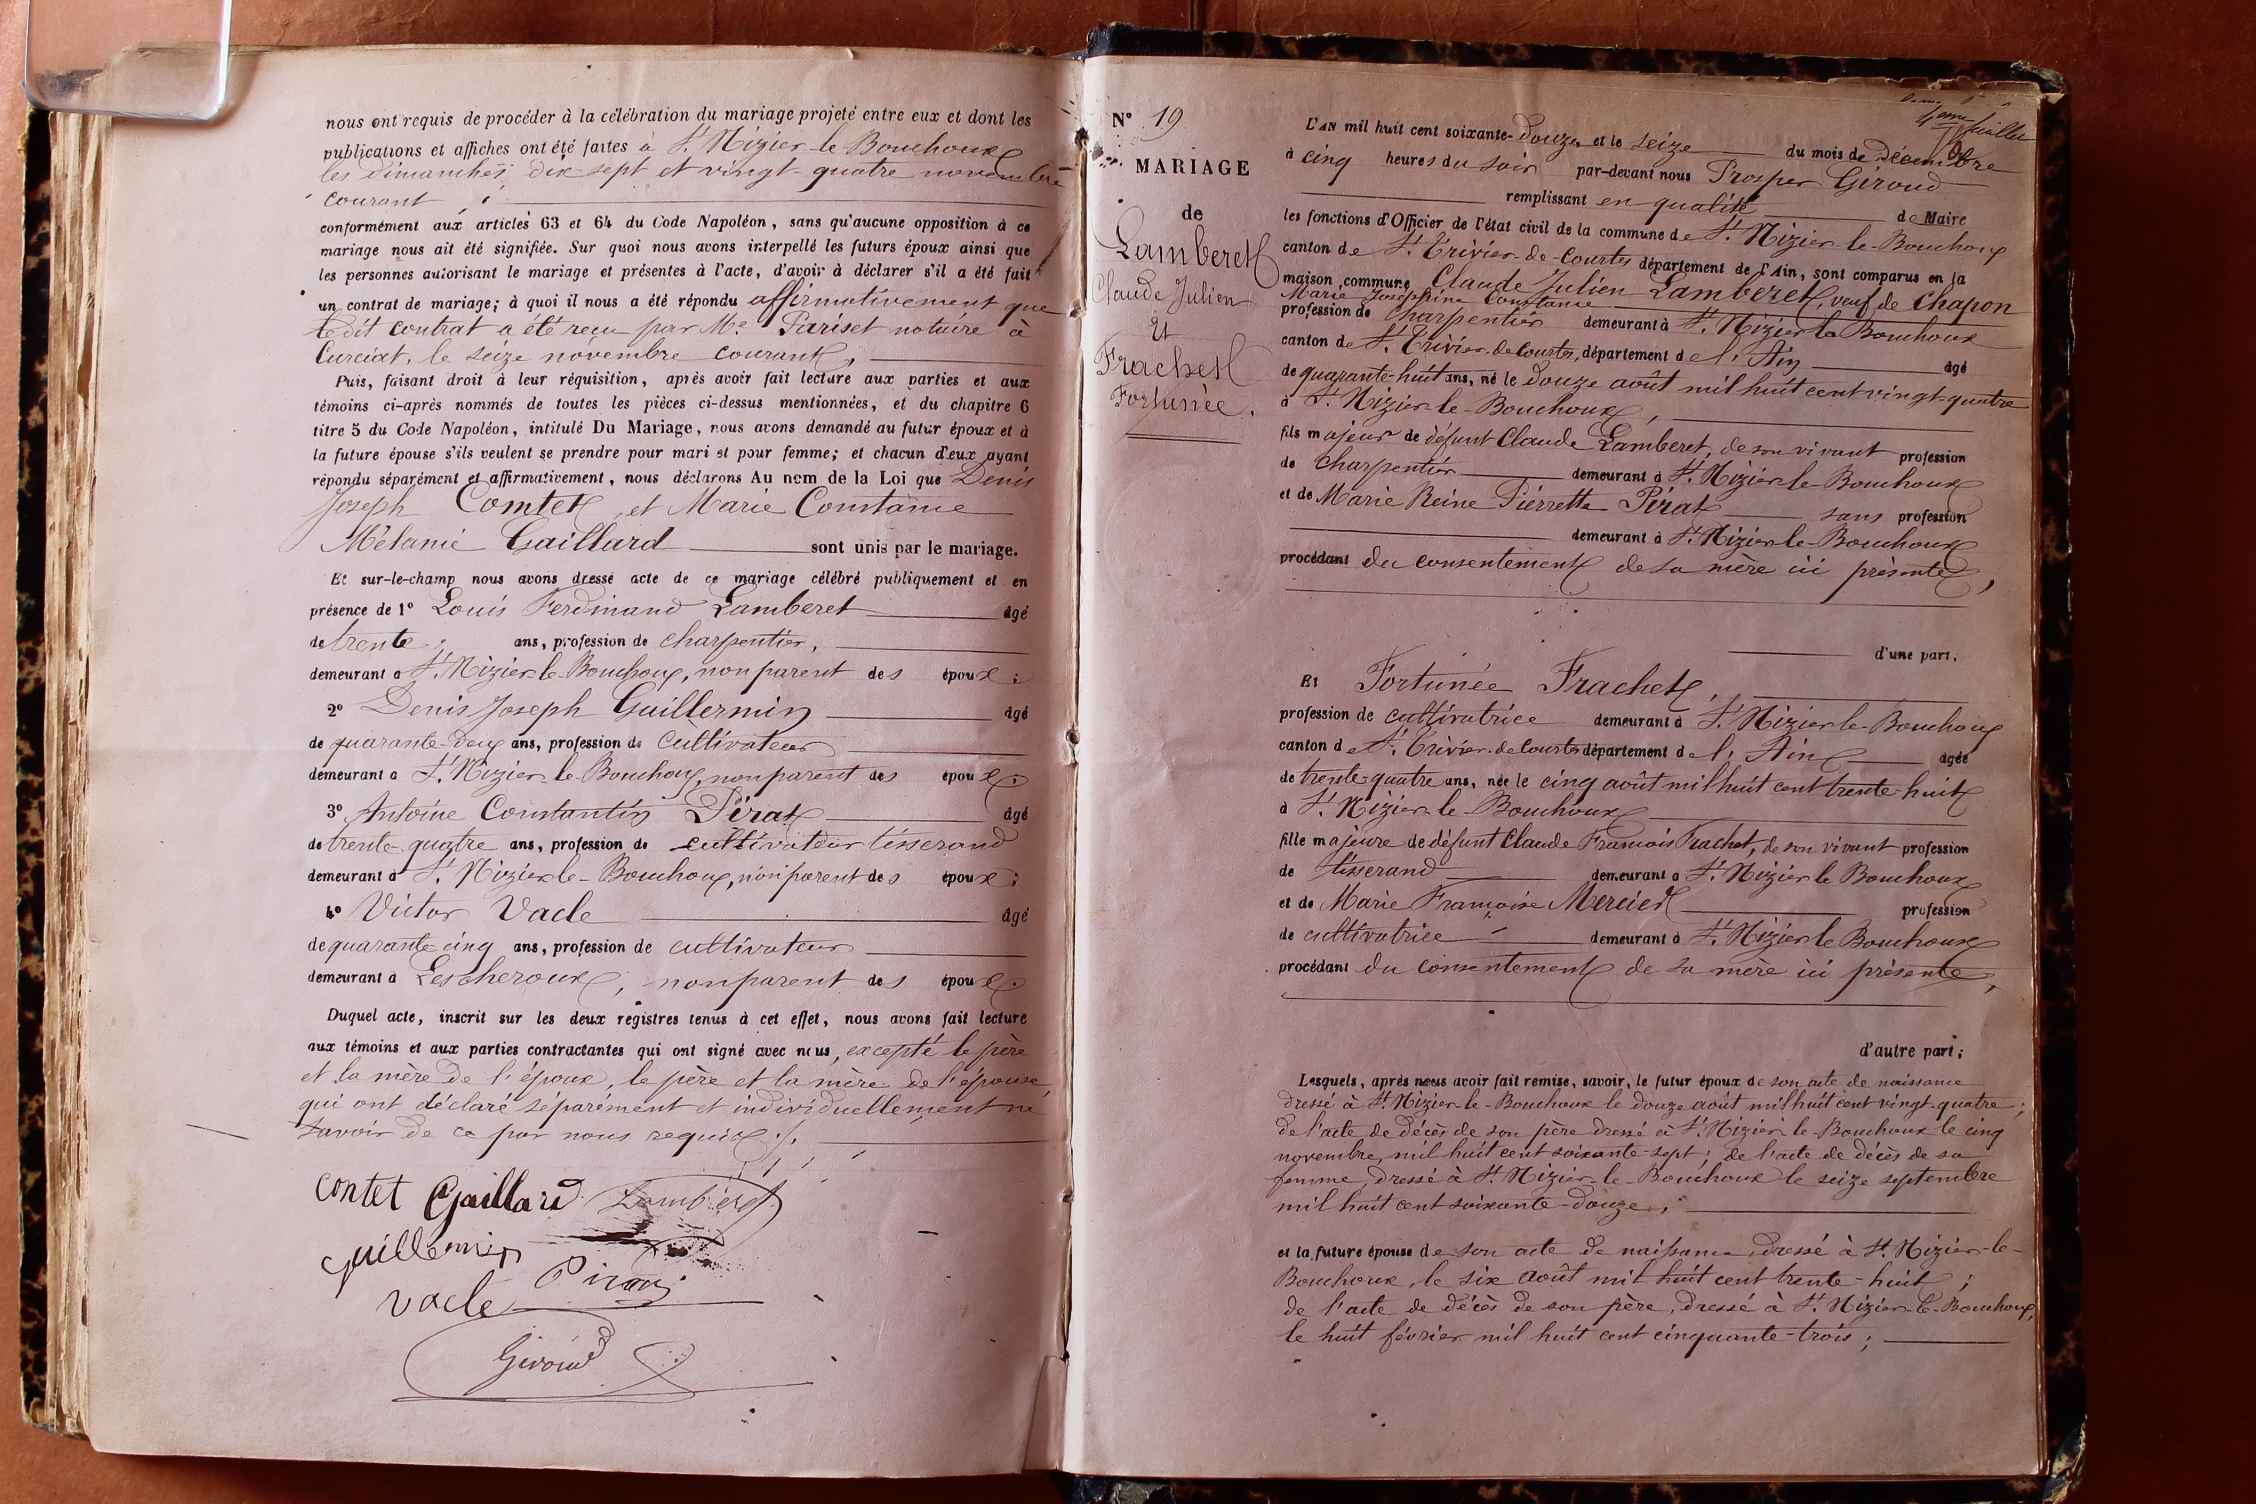 nous ont requis de procéder à la célébration du mariage projeté entre eux et dont les
publications et affiches ont été faites à St. Nizier-le-Bouchoux
les dimanches, dix-sept et vingt-quatre novembre
courant,
conformément aux articles 63 et 64 du Code Napoléon, sans qu'aucune opposition à ce
mariage nous ait été signifiée. Sur quoi nous avons interpellé les futurs époux ainsi que
les personnes autorisant le mariage et présentes à l'acte, d'avoir à déclarer s'il a été fait
un contrat de mariage; à quoi il nous a été répondu affirmativement que
ledit contrat a été reçu par Me Pariset notaire à
Curciat, le seize novembre courant,
Puis, faisant droit à leur réquisition, après avoir fait lecture aux parties et aux
témoins ci-après nommés de toutes les pièces ci-dessus mentionnées, et du chapitre 6
titre 5 du Code Napoléon, intitulé Du Mariage, nous avons demandé au futur époux et à
la future épouse s'ils veulent se prendre pour mari et pour femme; et chacun d'eux ayant
répondu séparément et affirmativement, nous déclarons Au nom de la Loi que Denis
Joseph Comtet, et Marie Constance
Mélanie Gaillard sont unis par le mariage.
Et sur-le-champ nous avons dressé acte de ce mariage célébré publiquement et en
présence de 1° Louis Ferdinand Lamberet âgé
de trente ans, profession de charpentier,
demeurant à St. Nizier-le-Bouchoux, non parent des époux;
2° Denis Joseph Guillermin âgé
de quarante-deux ans, profession de cultivateur
demeurant à St. Nizier-le-Bouchoux, non parent des époux.
3° Antoine Constantin Pirat âgé
de trente-quatre ans, profession de cultivateur tisserand
demeurant à St. Nizier-le-Bouchoux, non parent des époux;
4° Victor Vacle âgé
de quarante-cinq ans, profession de cultivateur
demeurant à Lescheroux, non parent des époux.
Duquel acte, inscrit sur les deux registres tenus à cet effet, nous avons fait lecture
aux témoins et aux parties contractantes qui ont signé avec nous, excepté le père
et la mère de l'époux, le père et la mère de l'épouse,
qui ont déclaré séparément et individuellement ne
savoir de ce par nous requis./.
contet Gaillard Lamberet
guillermin Pirat
vacle
Giroud
N° 19
MARIAGE
de
Lamberet
Claude Julien
Et
Frachet
Fortunée.
feuillet
L'AN mil huit cent soixante-douze et le seize du mois de Décembre
à cinq heures du soir par-devant nous Prosper Giroud
remplissant en qualité de Maire
les fonctions d'Officier de l'état civil de la commune de St. Nizier-le-Bouchoux
canton de St. Trivier-de-Courtes département de l'Ain, sont comparus en la
maison commune Claude Julien Lamberet, veuf de Chapon
Marie Joséphine Constance
profession de charpentier demeurant à St. Nizier-le-Bouchoux
canton de St. Trivier-de-Courtes, département de l'Ain âgé
de quarante-huit ans, né le douze août mil huit cent vingt-quatre
à St. Nizier-le-Bouchoux,
fils majeur de défunt Claude Lamberet, de son vivant profession
de charpentier demeurant à St. Nizier-le-Bouchoux
et de Marie Reine Pierrette Pirat sans profession
demeurant à St. Nizier-le-Bouchoux
procédant du consentement de sa mère ici présente,
d'une part.
Et Fortunée Frachet,
profession de cultivatrice demeurant à St. Nizier-le-Bouchoux
canton de St. Trivier-de-Courtes département de l'Ain âgée
de trente-quatre ans, née le cinq août mil huit cent trente-huit
à St. Nizier-le-Bouchoux
fille majeure de défunt Claude François Frachet, de son vivant profession
de tisserand demeurant à St. Nizier-le-Bouchoux
et de Marie Françoise Mercier profession
de cultivatrice demeurant à St. Nizier-le-Bouchoux
procédant du consentement de sa mère ici présente,
d'autre part;
Lesquels, après nous avoir fait remise, savoir, le futur époux de son acte de naissance
dressé à St. Nizier-le-Bouchoux le douze août mil huit cent vingt-quatre;
de l'acte de décès de son père dressé à St. Nizier-le-Bouchoux le cinq
novembre, mil huit cent soixante-sept; de l'acte de décès de sa
femme, dressé à St. Nizier-le-Bouchoux le seize septembre
mil huit cent soixante-douze;
et la future épouse de son acte de naissance, dressé à St. Nizier-le-
Bouchoux, le six août mil huit cent trente-huit;
de l'acte de décès de son père, dressé à St. Nizier-le-Bouchoux,
le huit février mil huit cent cinquante-trois;